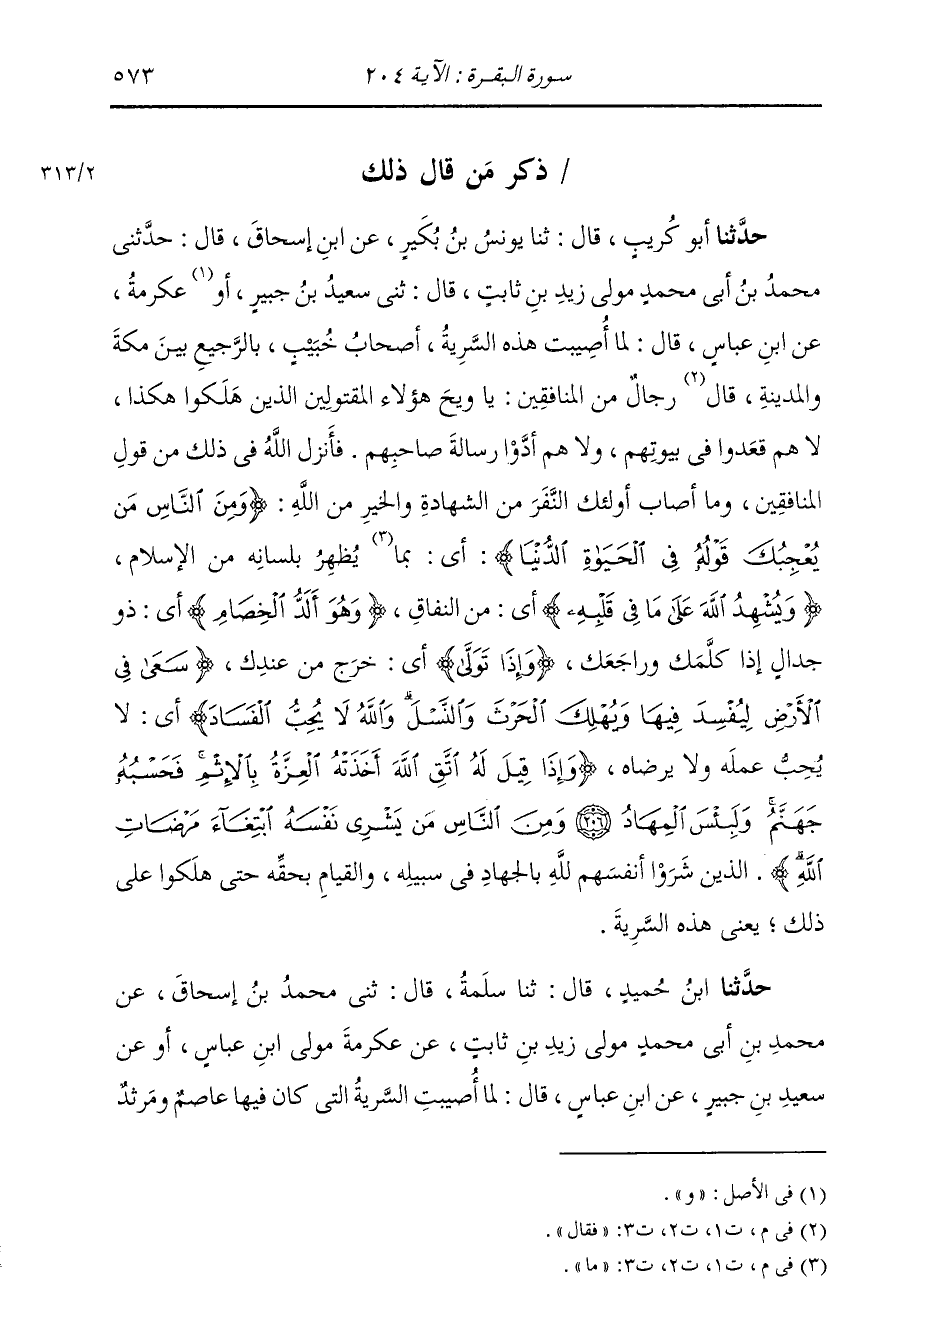 سورة البقرة : الآية ٢٠٤
٥٧٣
/ ذكر مَن قال ذلك
٣١٣/٢
حدَّثنا أبو كُريبٍ ، قال : ثنا يونسُ بنُ بُكَيرٍ ، عن ابنِ إسحاقَ ، قال : حدَّثنى
محمدُ بنُ أبى محمدٍ مولى زيدِ بنِ ثابتٍ ، قال : ثنى سعيدُ بنُ جبيرٍ ، أو(١) عكرمةُ ،
عن ابنِ عباسٍ ، قال : لما أُصِيبت هذه السَّرِيةُ ، أصحابُ خُبَيْبٍ ، بالرَّجيعِ بينَ مكةَ
والمدينةِ ، قال(٢) رجالٌ من المنافقِين : يا ويحَ هؤلاء المقتولِين الذين هَلَكوا هكذا ،
لا هم قعَدوا فى بيوتِهم ، ولا هم أدَّوْا رسالةَ صاحبِهم . فأَنزل اللَّهُ فى ذلك من قولِ
المنافقِين ، وما أصاب أولئك النَّفَرَ من الشهادةِ والخيرِ من اللَّهِ : ﴿وَمِنَ ٱلنَّاسِ مَن
يُعْجِبُكَ قَوْلُهُۥ فِى ٱلْحَيَوٰةِ ٱلدُّنْيَا﴾ : أى : بما(٣) يُظهِرُ بلسانِه من الإسلام ،
﴿وَيُشْهِدُ ٱللَّهَ عَلَىٰ مَا فِى قَلْبِهِۦ﴾ أى : من النفاقِ ، ﴿وَهُوَ أَلَدُّ ٱلْخِصَامِ﴾ أى : ذو
جدالٍ إذا كلَّمَك وراجَعَك ، ﴿وَإِذَا تَوَلَّىٰ﴾ أى : خرَج من عندِك ، ﴿سَعَىٰ فِى
ٱلْأَرْضِ لِيُفْسِدَ فِيهَا وَيُهْلِكَ ٱلْحَرْثَ وَٱلنَّسْلَ ۗ وَٱللَّهُ لَا يُحِبُّ ٱلْفَسَادَ﴾ أى : لا
يُحِبُّ عملَه ولا يرضاه ، ﴿وَإِذَا قِيلَ لَهُ ٱتَّقِ ٱللَّهَ أَخَذَتْهُ ٱلْعِزَّةُ بِٱلْإِثْمِ ۚ فَحَسْبُهُۥ
جَهَنَّمُ ۚ وَلَبِئْسَ ٱلْمِهَادُ ۝٢٠٦ وَمِنَ ٱلنَّاسِ مَن يَشْرِى نَفْسَهُ ٱبْتِغَآءَ مَرْضَاتِ
ٱللَّهِ ۗ﴾ . الذين شَرَوْا أنفسَهم للَّهِ بالجهادِ فى سبيلِه ، والقيامِ بحقِّه حتى هلَكوا على
ذلك ؛ يعنى هذه السَّرِيةَ .
حدَّثنا ابنُ حُميدٍ ، قال : ثنا سلَمةُ ، قال : ثنى محمدُ بنُ إسحاقَ ، عن
محمدِ بنِ أبى محمدٍ مولى زيدِ بنِ ثابتٍ ، عن عكرمةَ مولى ابنِ عباسٍ ، أو عن
سعيدِ بنِ جبيرٍ ، عن ابنِ عباسٍ ، قال : لما أُصيبتِ السَّريةُ التى كان فيها عاصمٌ ومَرثدٌ
(١) فى الأصل : « و » .
(٢) فى م ، ت١، ت٢، ت٣: « فقال » .
(٣) فى م ، ت١، ت٢، ت٣: « ما » .